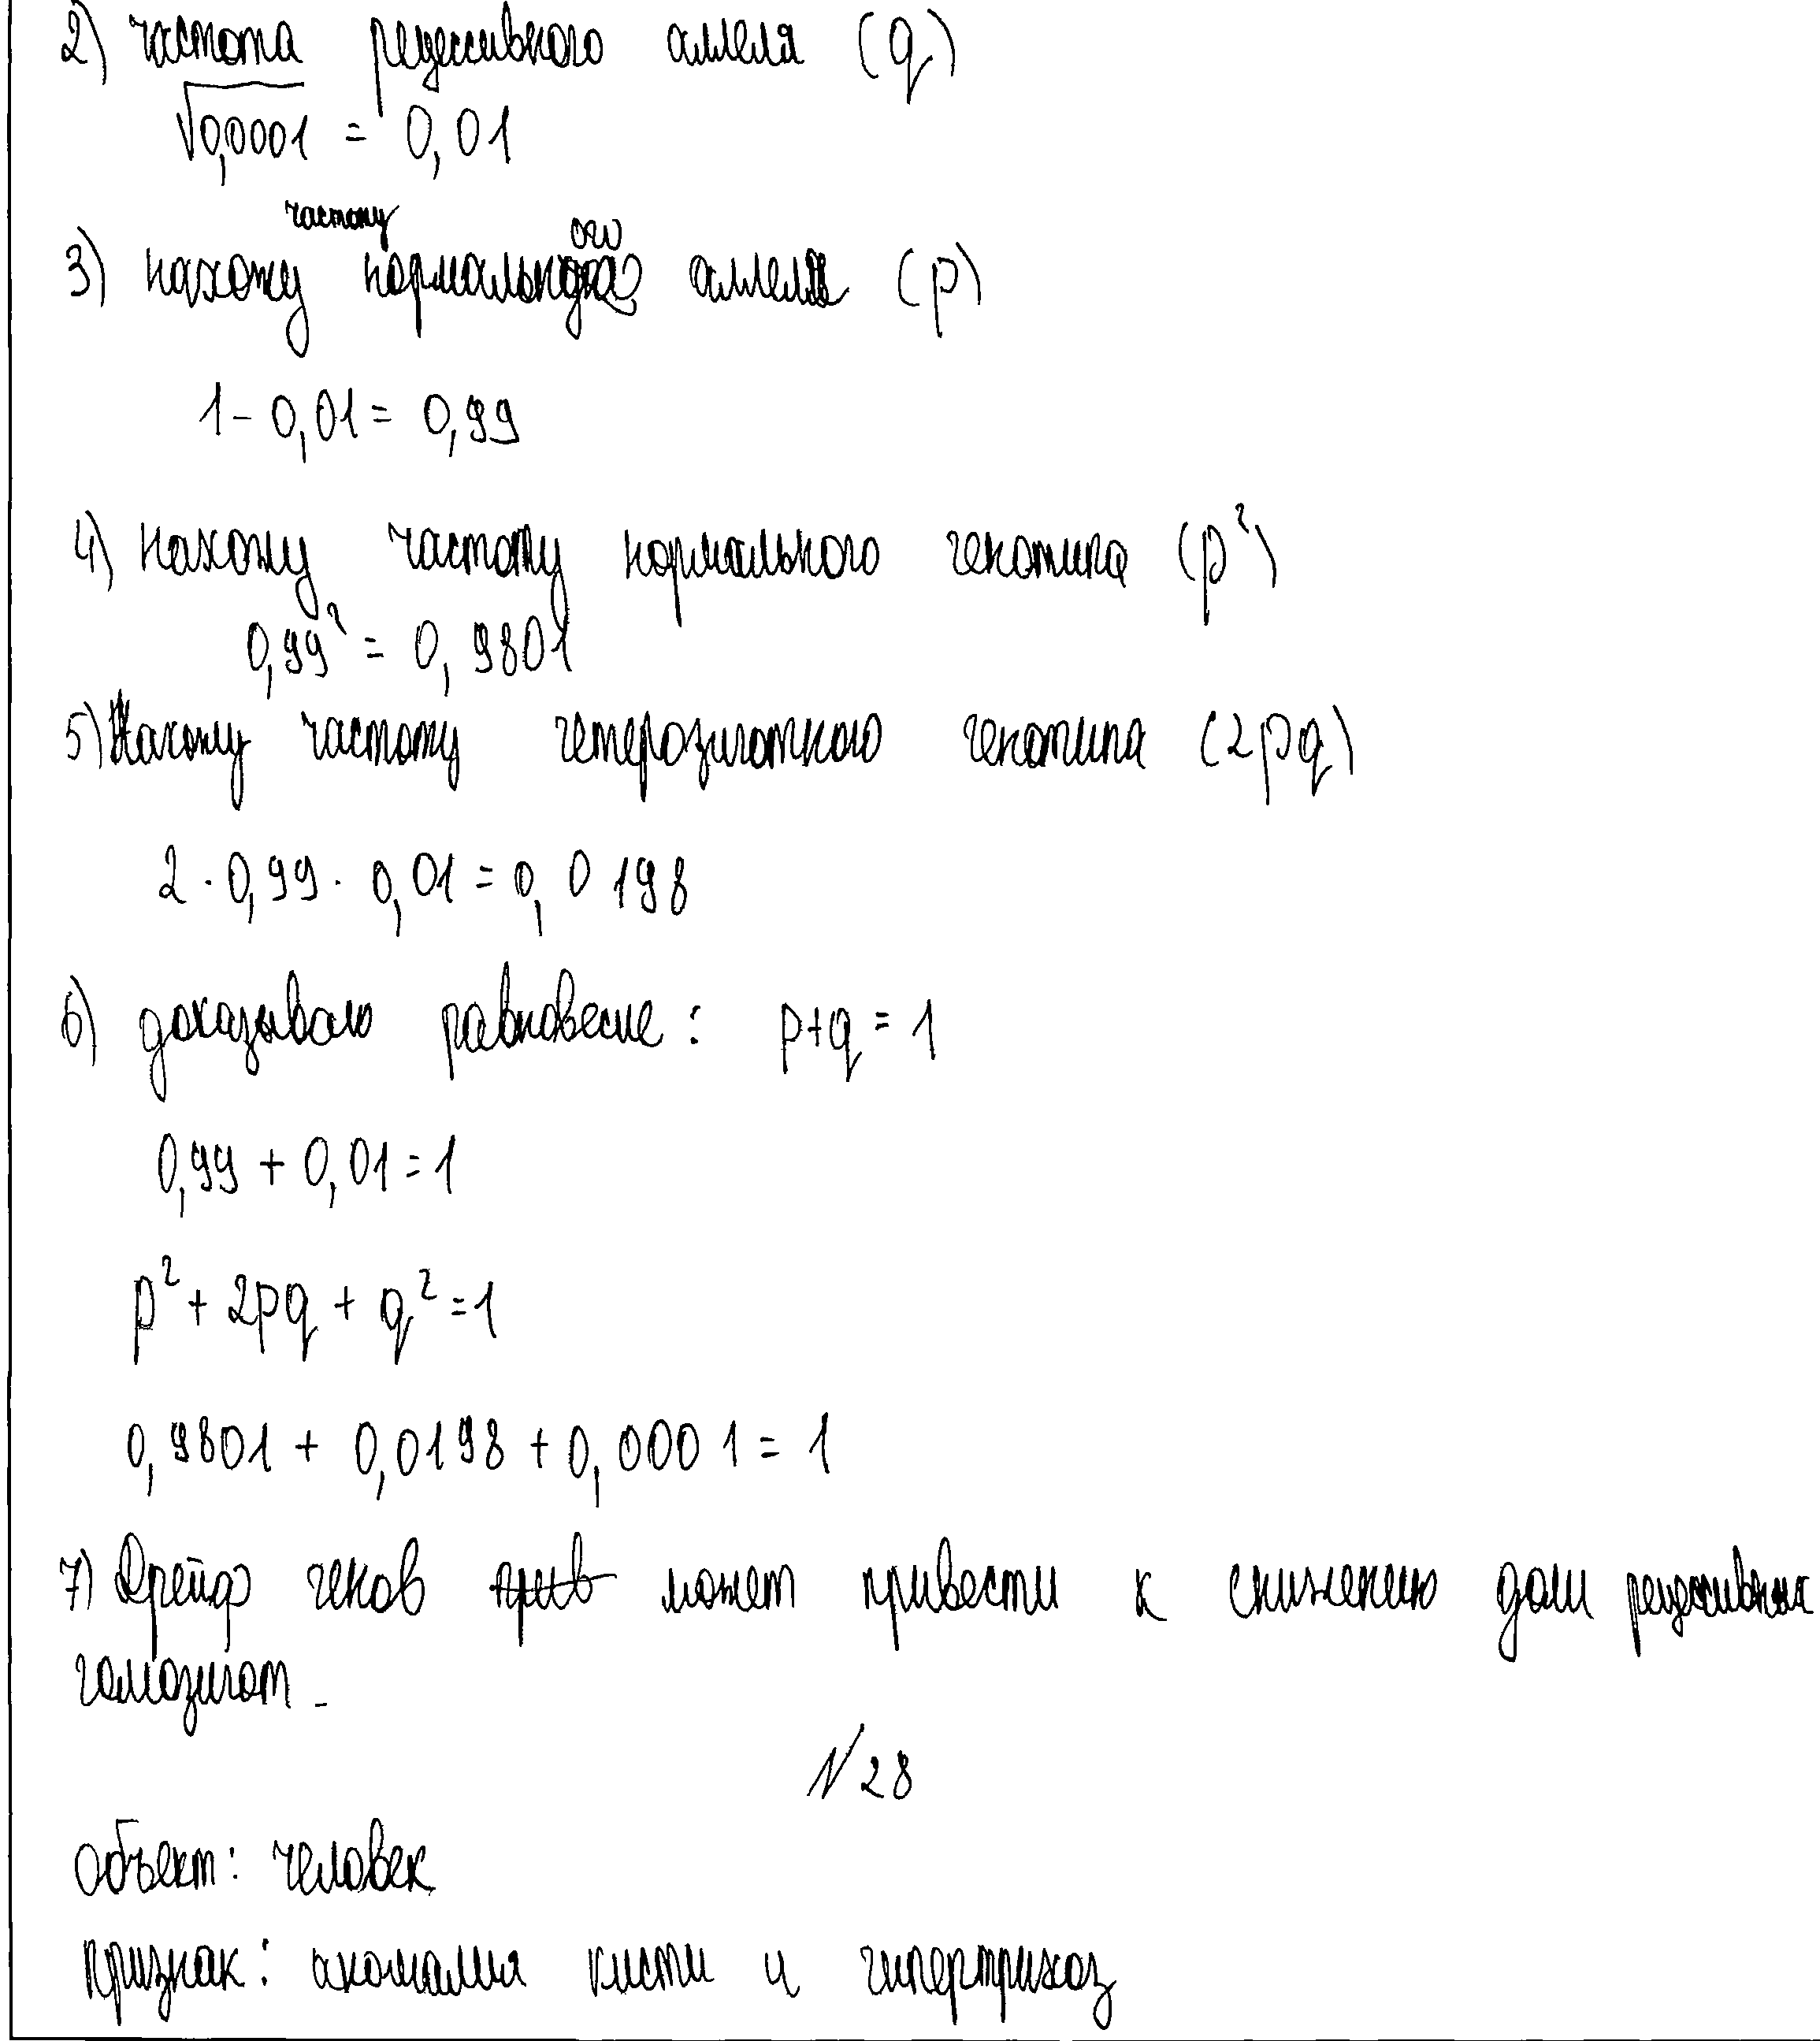 2) частота рецессивного аллеля (q)
√0,0001 = 0,01
частоту ого
3) нахожу нормального аллеля (p)
1 - 0,01 = 0,99
4) нахожу частоту нормального генотипа (p²)
0,99² = 0,9801
5) Нахожу частоту гетерозиготного генотипа (2pq)
2 · 0,99 · 0,01 = 0,0198
6) доказываю равновесие: p+q = 1
0,99 + 0,01 = 1
p² + 2pq + q² = 1
0,9801 + 0,0198 + 0,0001 = 1
7) Дрейф генов может привести к снижению доли рецессивных
гомозигот.
№28
объект: человек
признак: аномалия кисти и гипертрихоз